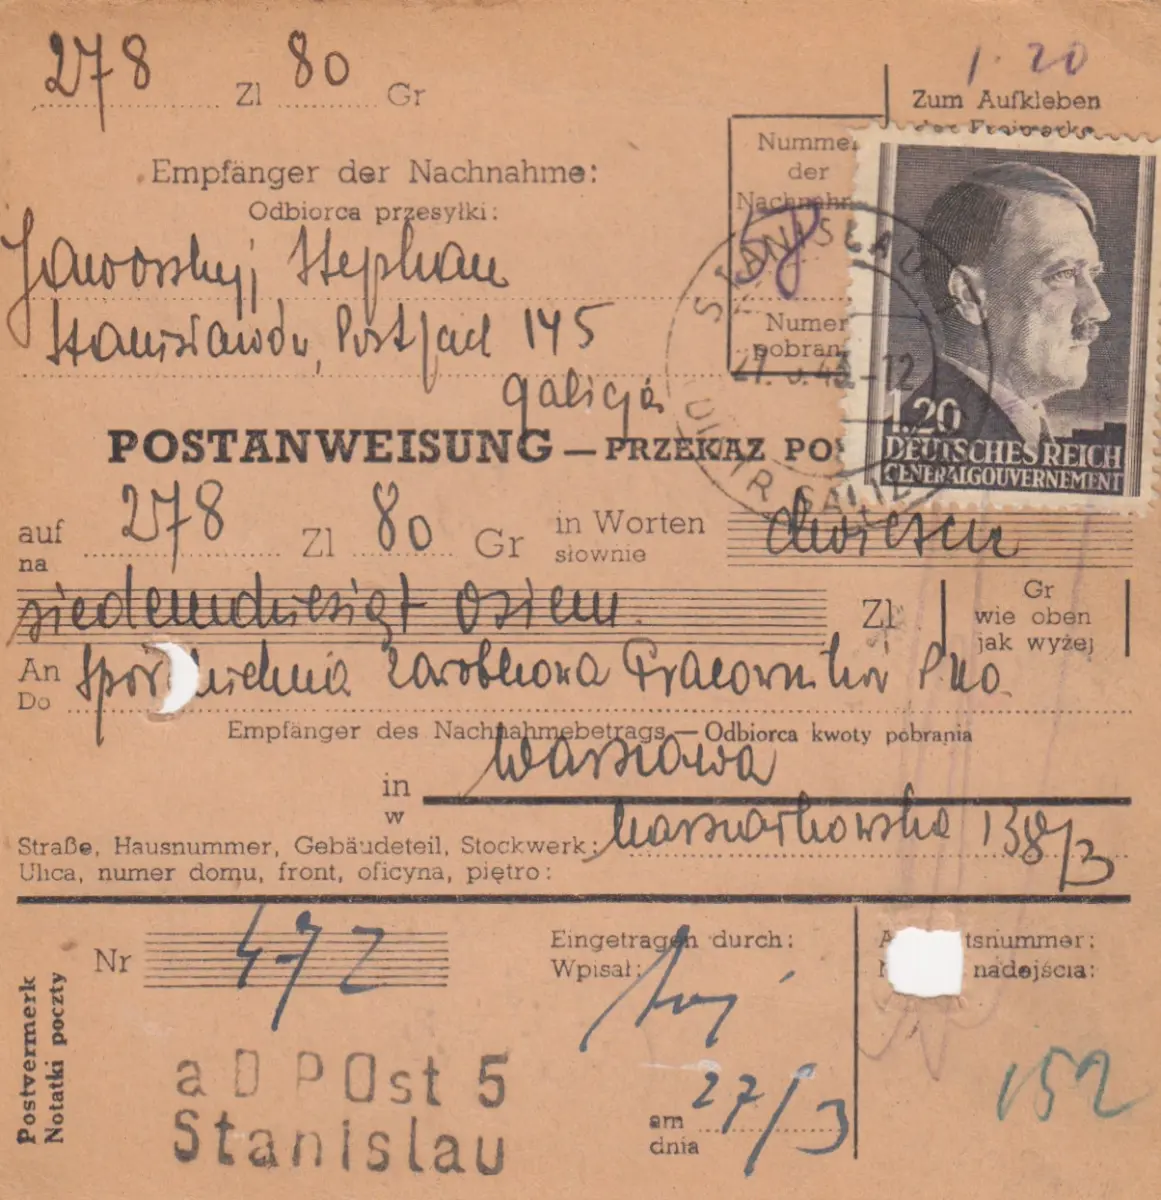 278 Zl 80 Gr
1.20
Zum Aufkleben
der Freimarke
Empfänger der Nachnahme:
Odbiorca przesyłki:
Nummer
der
Nachnahm
58
Numer
pobran
Jaworskyj Stephan
Stanislawów, Postfach 145
Galicja
STANISLAU
27.3.43-12
(DISTR. GALIZ
1.20
DEUTSCHES REICH
GENERALGOUVERNEMENT
POSTANWEISUNG – PRZEKAZ PO
auf 278 Zl 80 Gr in Worten dwieście
na słownie
siedemdziesiąt osiem Zl Gr
wie oben
jak wyżej
An Spółdzielnia Zarobkowa Pracowników P.K.O.
Do
Empfänger des Nachnahmebetrags – Odbiorca kwoty pobrania
in Warszawa
w
Straße, Hausnummer, Gebäudeteil, Stockwerk: Marszałkowska 138/3
Ulica, numer domu, front, oficyna, piętro:
Postvermerk
Notatki poczty
Nr 472
Eingetragen durch:
Wpisał:
A tsnummer:
N nadejścia:
152
aDPOst 5
Stanislau
am 27/3
dnia